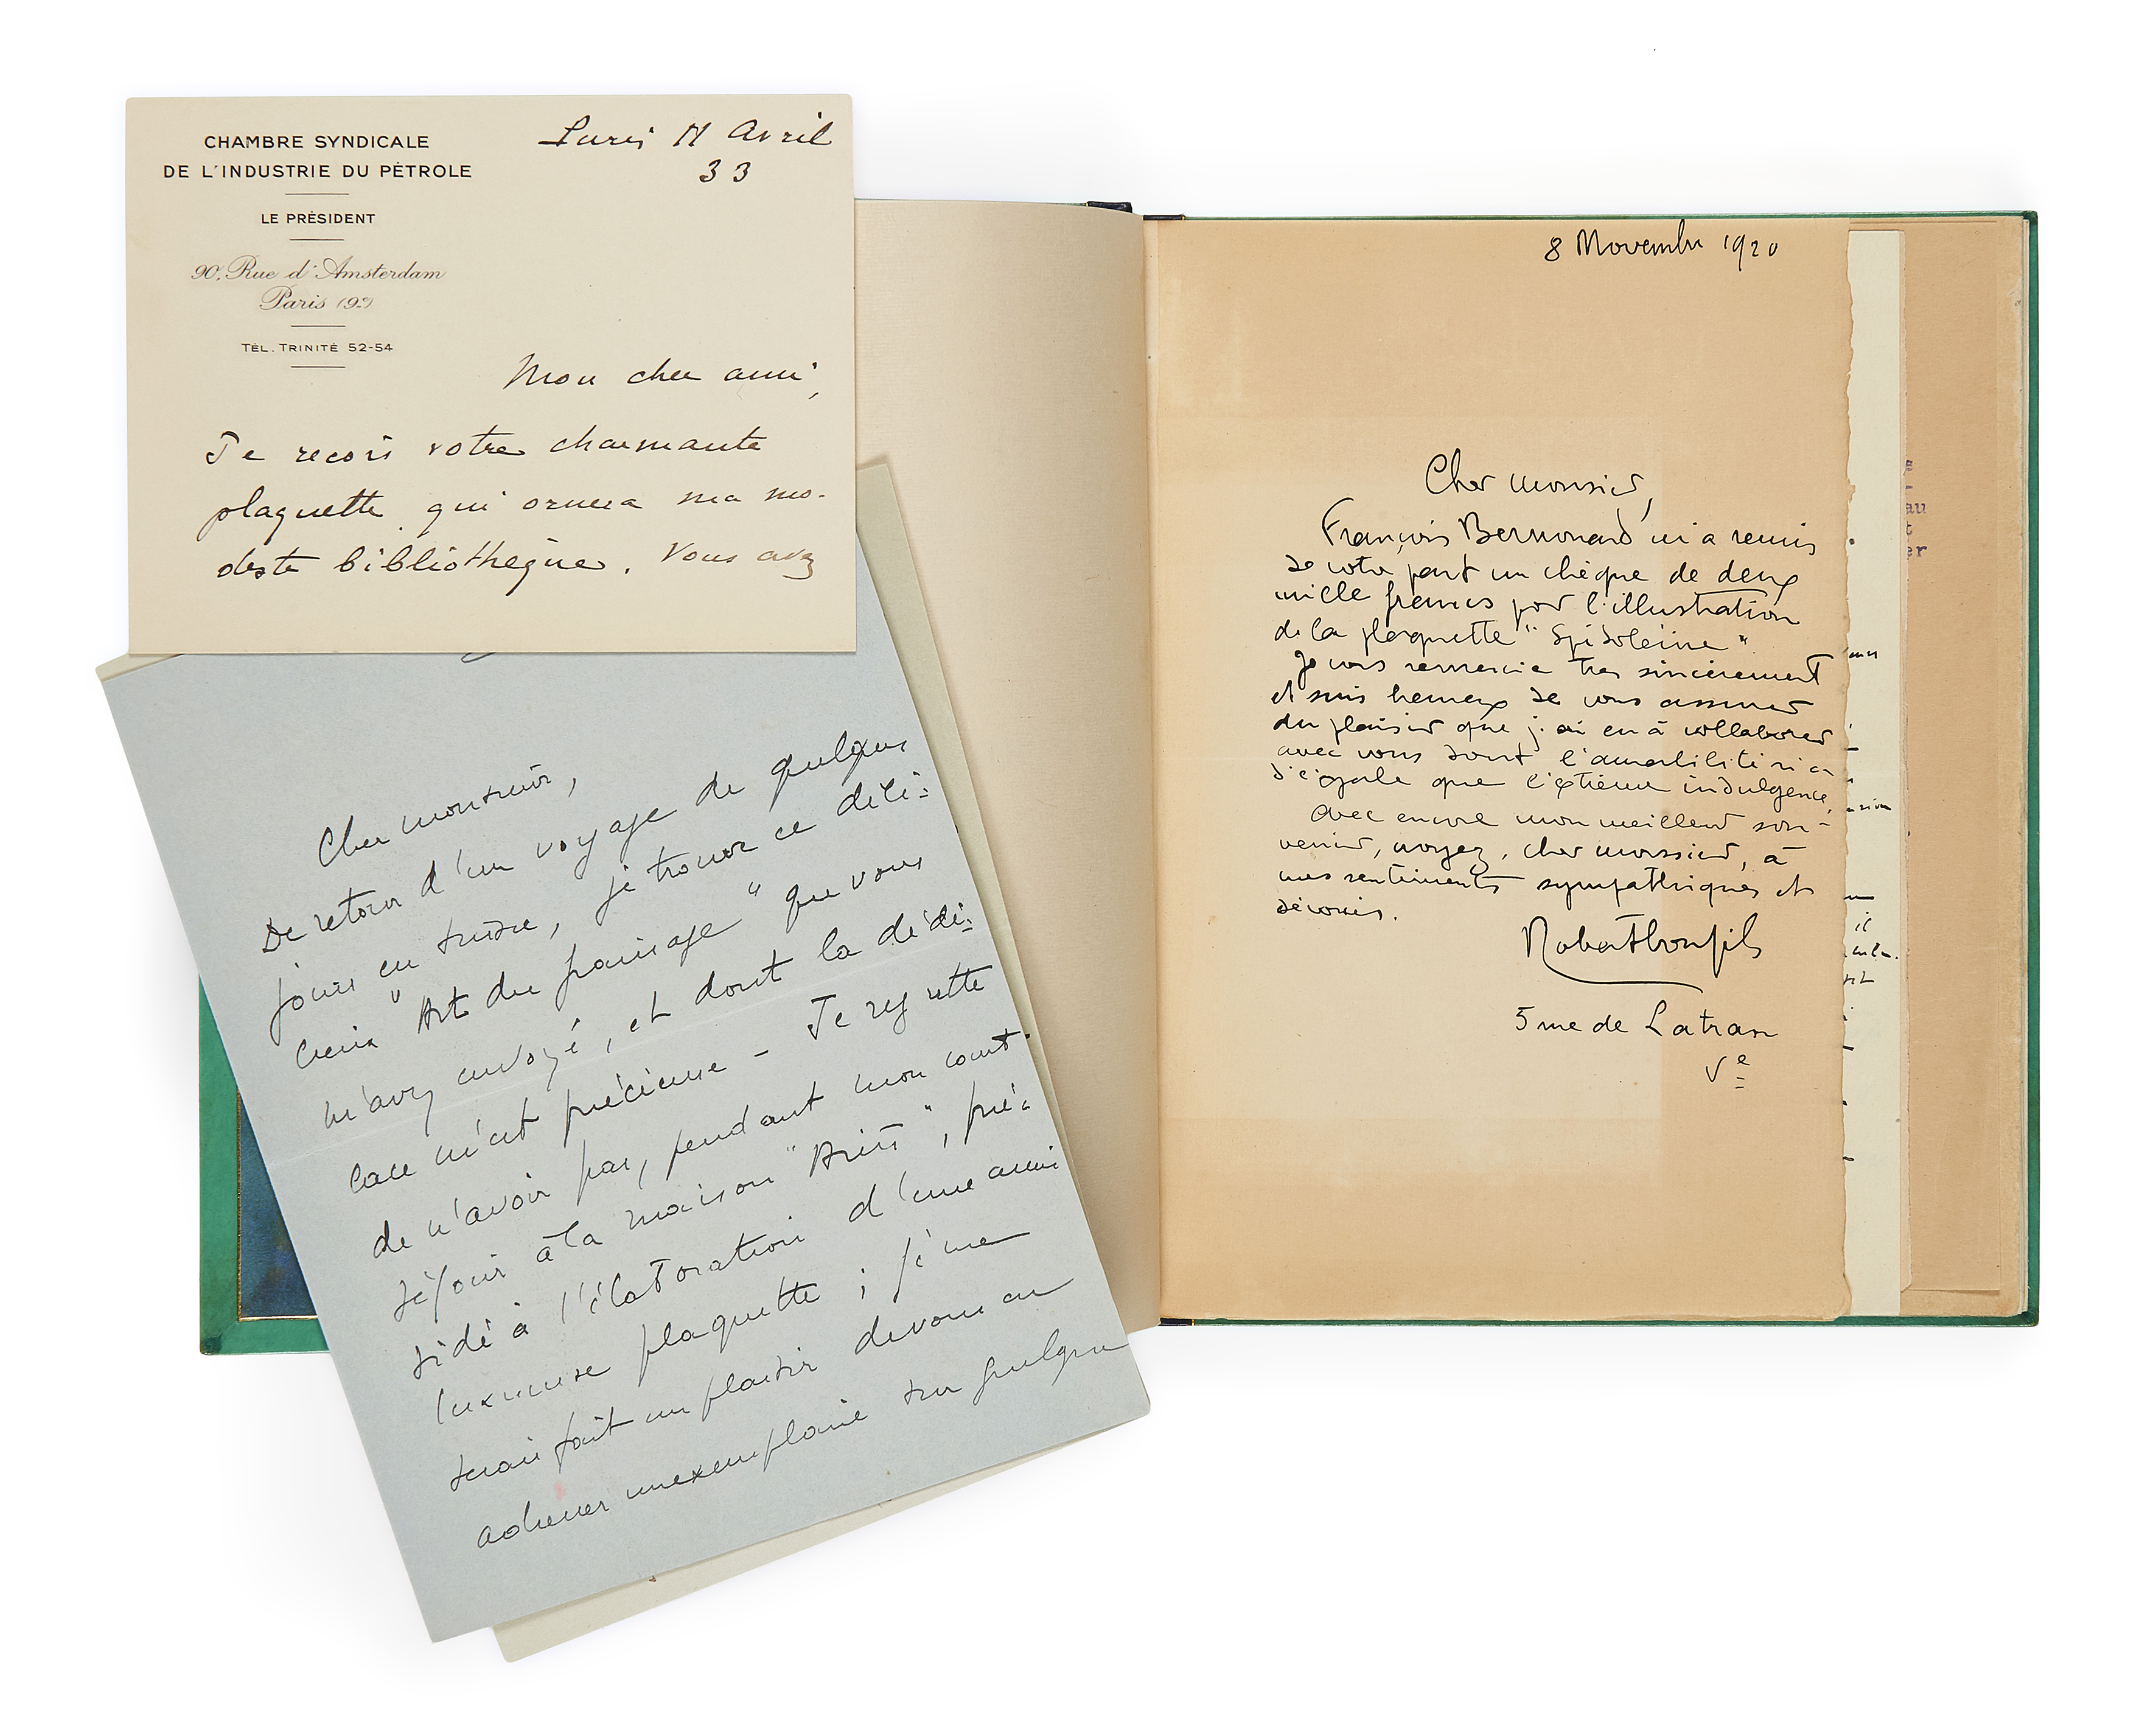 CHAMBRE SYNDICALE
DE L'INDUSTRIE DU PÉTROLE
LE PRÉSIDENT
90, Rue d'Amsterdam
Paris (9e)
TÉL. TRINITÉ 52-54
Paris 11 Avril
33
Mon cher ami,
Je reçois votre charmante
plaquette qui ornera ma mo-
deste bibliothèque. Vous avez
Cher monsieur,
De retour d'un voyage de quelques
jours en Suisse, je trouve ce déli-
cieux "Art du paysage" que vous
m'avez envoyé, et dont la dédi-
cace m'est précieuse - Je regrette
de n'avoir pas, pendant mon court
séjour à la maison "Arts", pré-
sidé à l'élaboration d'une aussi
luxueuse plaquette ; je me
serais fait un plaisir de vous en
adresser un exemplaire sur quelque
8 Novembre 1920
Cher monsieur,
François Bernouard m'a remis
de votre part un chèque de deux
mille francs pour l'illustration
de la plaquette "Spidoléine"
Je vous remercie très sincèrement
et suis heureux de vous assurer
du plaisir que j'ai eu à collaborer
avec vous dont l'amabilité n'a
d'égale que l'extrême indulgence.
Avec encore mon meilleur sou-
venir, croyez, cher monsieur, à
mes sentiments sympathiques et
dévoués.
Robert Bonfils
5 rue de Latran
Ve
au
t
er
il